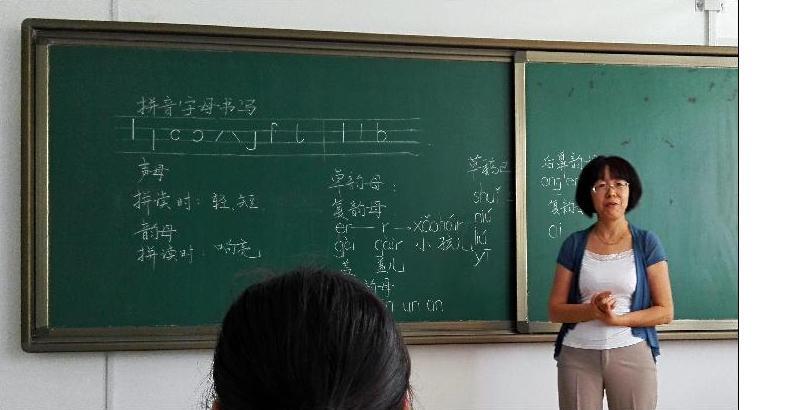 拼音字母书写
声母
拼读时：轻、短
韵母
拼读时：响亮
单韵母：
复韵母
er — r → xiǎohair
gài gàir 小孩儿
盖 盖儿
韵母
un ün
草稿
shuǐ
niú
liú
yī
后鼻韵
ang er
复韵
ai